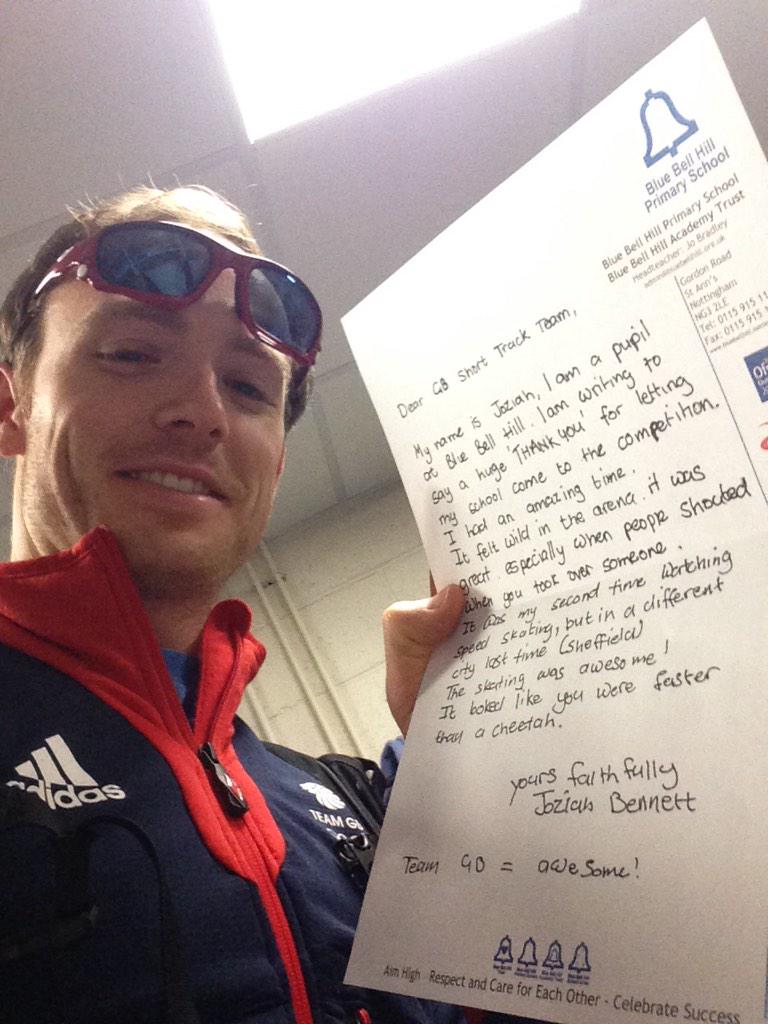 Blue Bell Hill
Primary School
Blue Bell Hill Primary School
Blue Bell Hill Academy Trust
Headteacher: Jo Bradley
Gordon Road
St Ann's
Nottingham
NG3 2LE
Tel: 0115 915 11
Fax: 0115 915 1
Dear GB Short Track Team,
My name is Joziah, I am a pupil
at Blue Bell Hill. I am writing to
say a huge 'THANK YOU' for letting
my school come to the competition.
I had an amazing time.
It felt wild in the arena. it was
great. especially when people shouted
when you took over someone.
It was my second time watching
speed skating, but in a different
city last time (Sheffield)
The skating was awesome!
It looked like you were faster
than a cheetah.
yours faithfully
Joziah Bennett
Team GB = awesome!
Aim High - Respect and Care for Each Other - Celebrate Success
adidas
TEAM GB